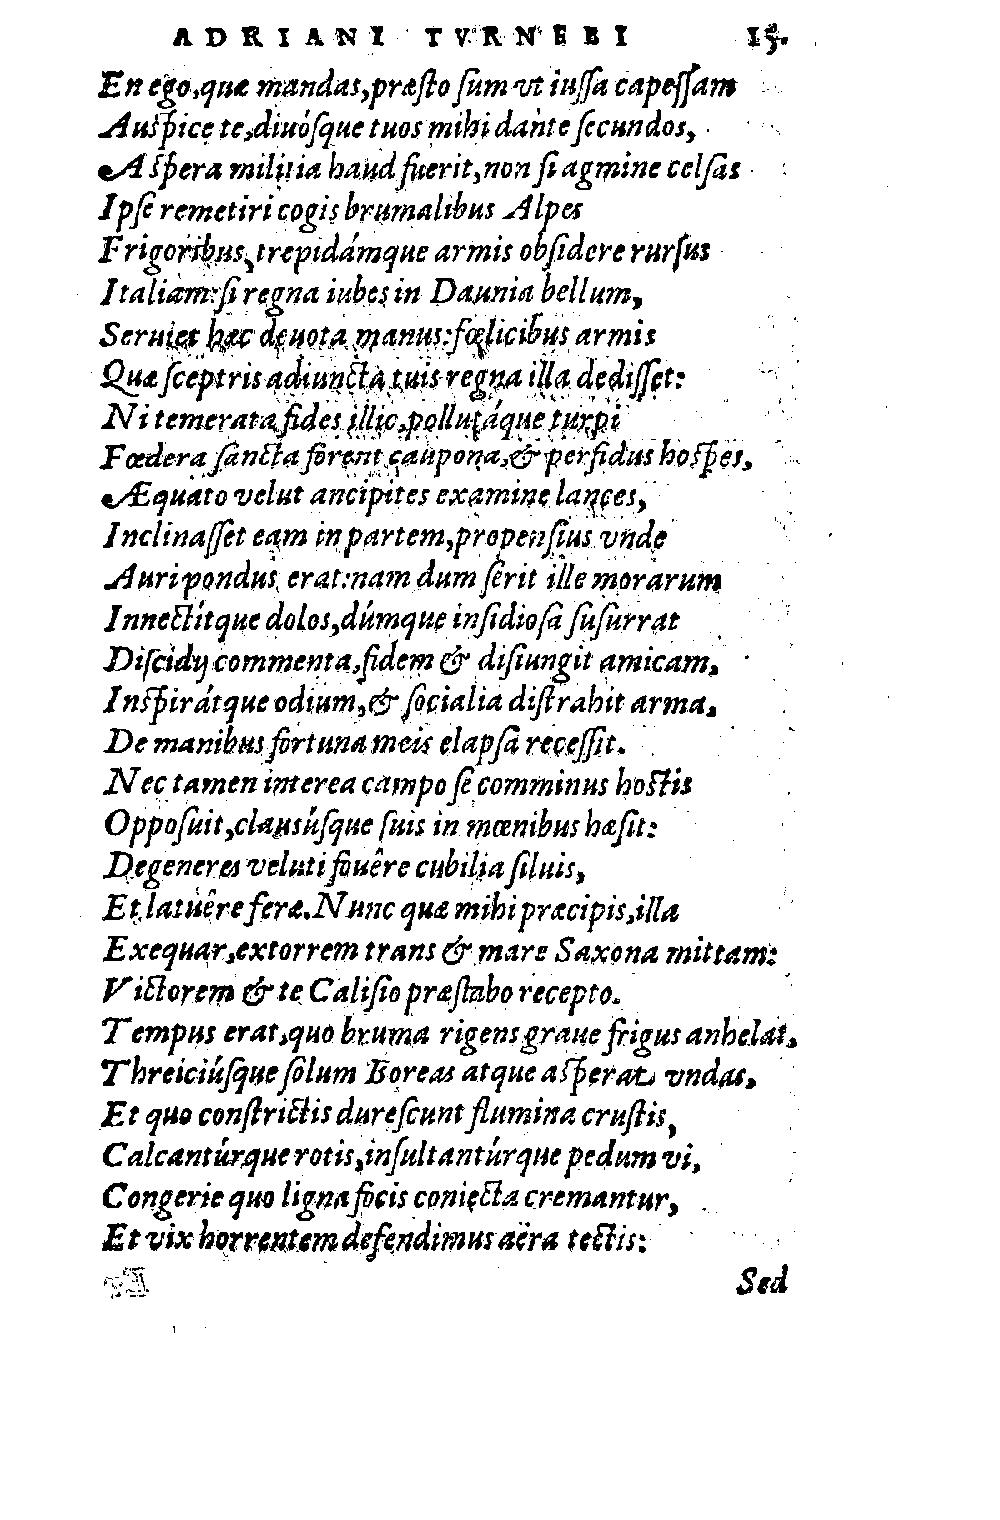 ADRIANI TVRNEBI 15.
En ego,quæ mandas,præsto sum vt iussa capessam
Auspice te,diuósque tuos mihi dante secundos,
Aspera militia haud fuerit,non si agmine celsas
Ipse remetiri cogis brumalibus Alpes
Frigoribus,trepidámque armis obsidere rursus
Italiam:si regna iubes in Daunia bellum,
Seruiet hæc deuota manus:fœlicibus armis
Quæ sceptris adiuncta tuis regna illa dedisset:
Ni temerata fides illic,pollutáque turpi
Fœdera sancta forent caupona,& perfidus hospes,
Æquato velut ancipites examine lances,
Inclinasset eam in partem,propensius vnde
Auri pondus erat:nam dum serit ille morarum
Innectítque dolos,dúmque insidiosa susurrat
Discidij commenta,fidem & disiungit amicam,
Inspirátque odium,& socialia distrahit arma,
De manibus fortuna meis elapsa recessit.
Nec tamen interea campo se comminus hostis
Opposuit,clausúsque suis in mœnibus hæsit:
Degeneres veluti fouêre cubilia siluis,
Et latuêre feræ.Nunc quæ mihi præcipis,illa
Exequar,extorrem trans & mare Saxona mittam:
Victorem & te Calisio præstabo recepto.
Tempus erat,quo bruma rigens graue frigus anhelat,
Threiciúsque solum Boreas atque asperat vndas,
Et quo constrictis durescunt flumina crustis,
Calcantúrque rotis,insultantúrque pedum vi,
Congerie quo ligna focis coniecta cremantur,
Et vix horrentem defendimus aëra tectis:
Sed